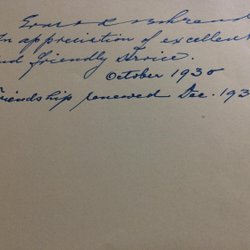 In appreciation of excellent
and friendly service.
October 1930
Friendship renewed Dec. 193